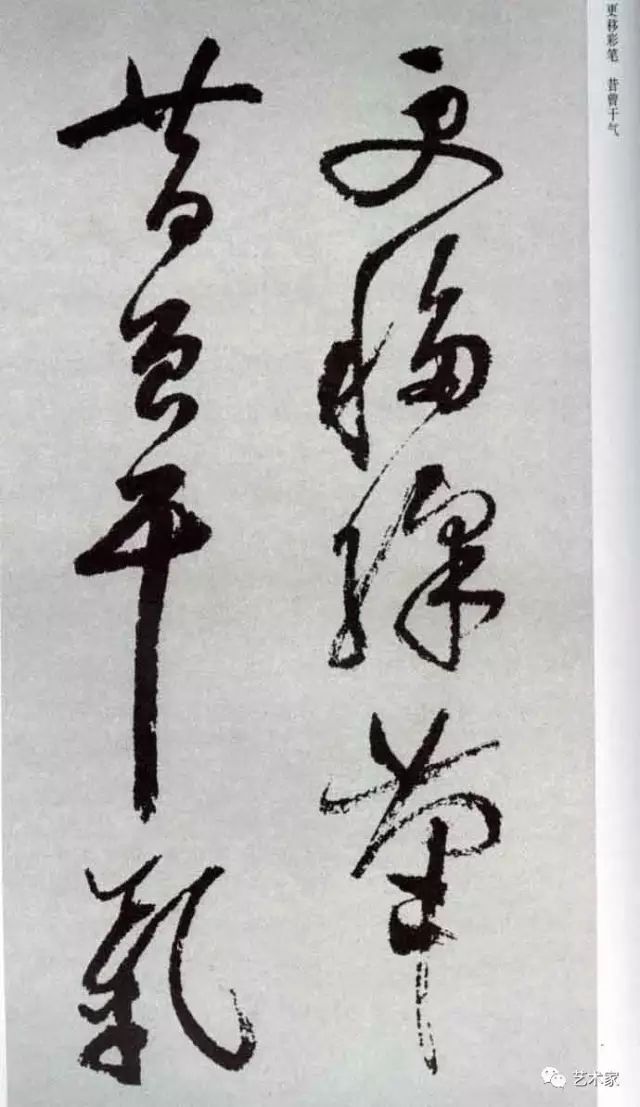 更移綵筆
昔曾干氣
更移彩笔　昔曾干气
艺术家